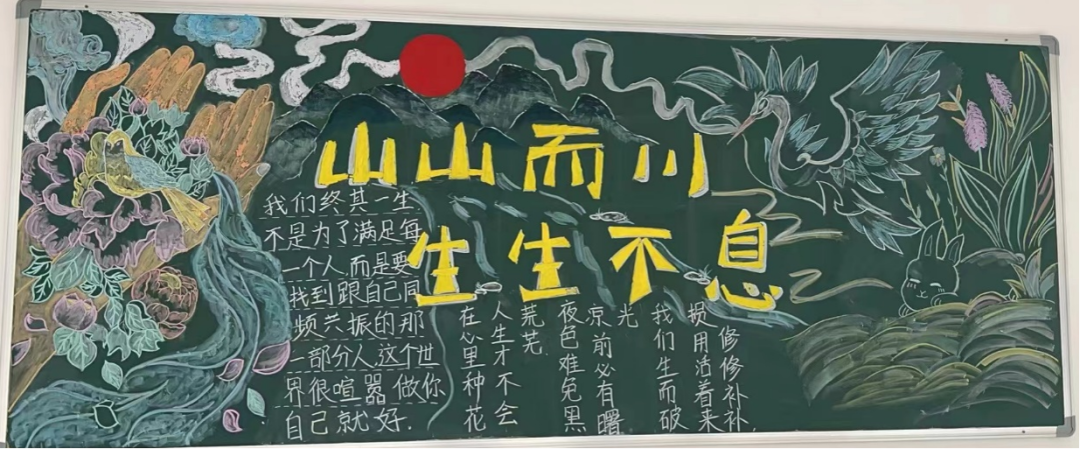 山山而川
生生不息
我们终其一生
不是为了满足每
一个人,而是要
找到跟自己同
频共振的那
一部分人,这个世
界很喧嚣,做你
自己就好.
在心里种花
人生才不会
荒芜
夜色难免黑
京前必有曙
光
我们生而破
损用活着来
修修补补.